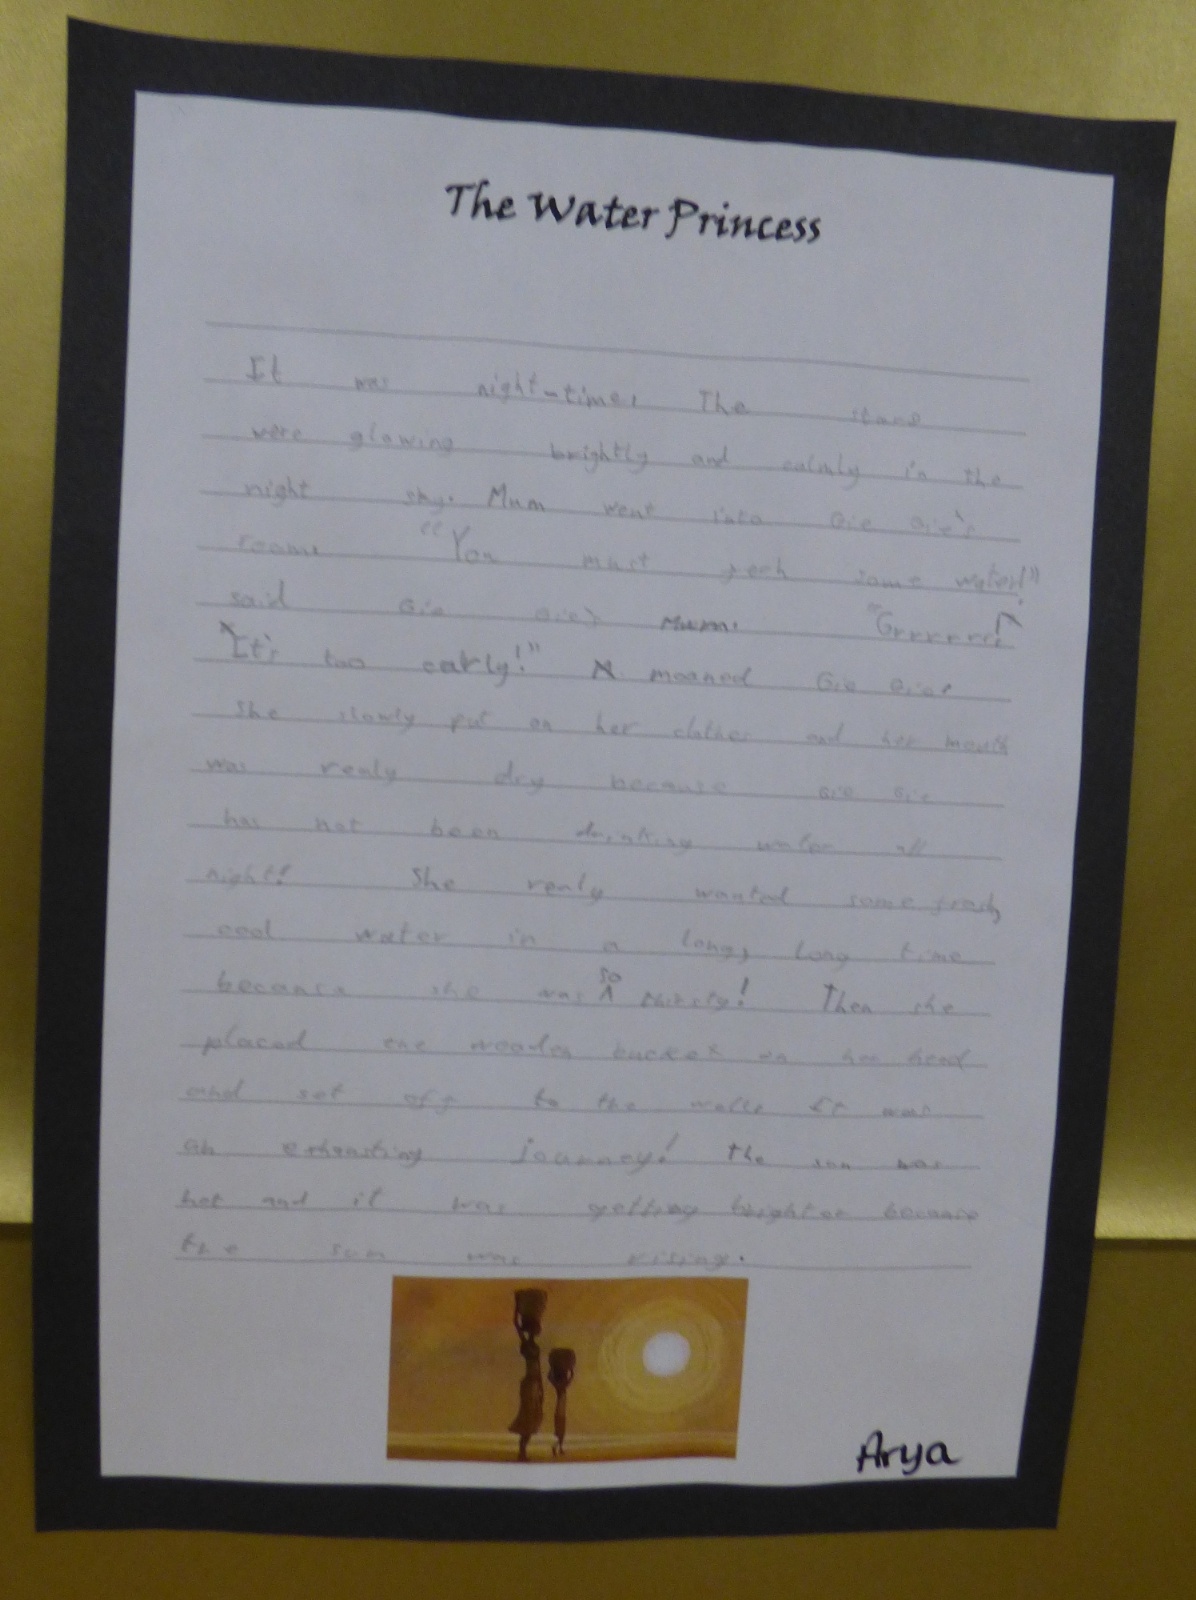 The Water Princess
It was night-time. The stars
were glowing brightly and calmly in the
night sky. Mum went into Gie Gie's
room. "You must fech some water!"
said Gie Gie's Mum. "Grrrrrr!
"It's too early!" moaned Gie Gie.
She slowly put on her clothes and her mouth
was realy dry because Gie Gie
has not been drinking water all
night! She realy wanted some fresh,
cool water in a long, long time
because she was so thirsty! Then she
placed the wooden bucket on her head
and set off to the well. It was
an exhausting journey! The sun was
hot and it was getting brighter because
the sun was rising.
Arya